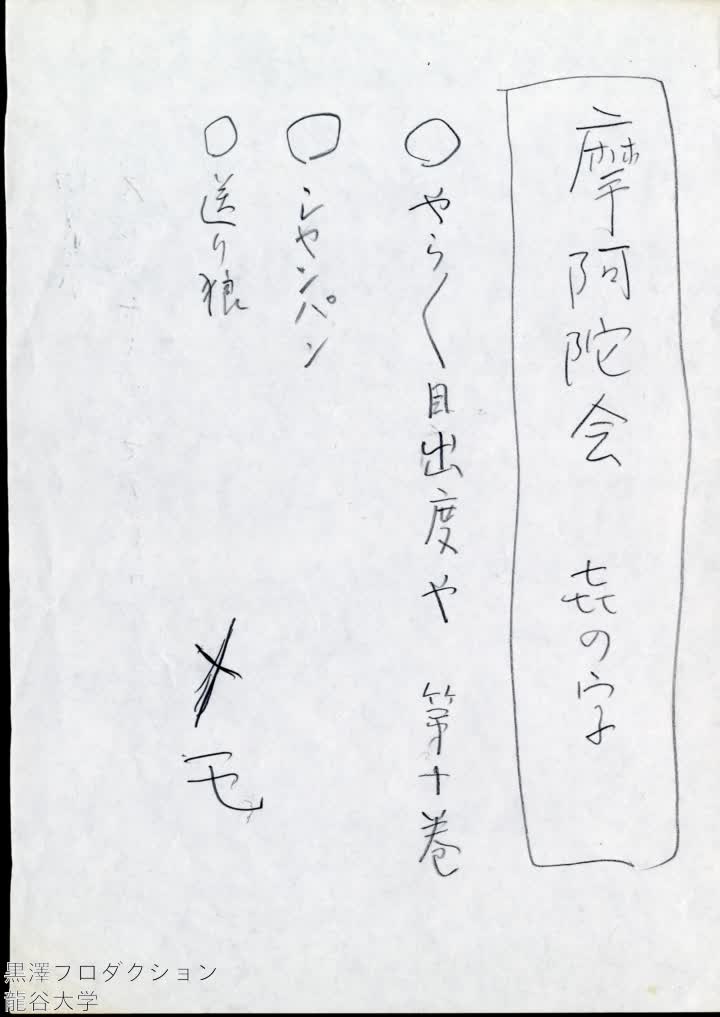 摩阿陀会 㐂の字
○やら〱目出度や 第十巻
○シャンパン
○送り狼
メモ
黒澤フロダクション
龍谷大学